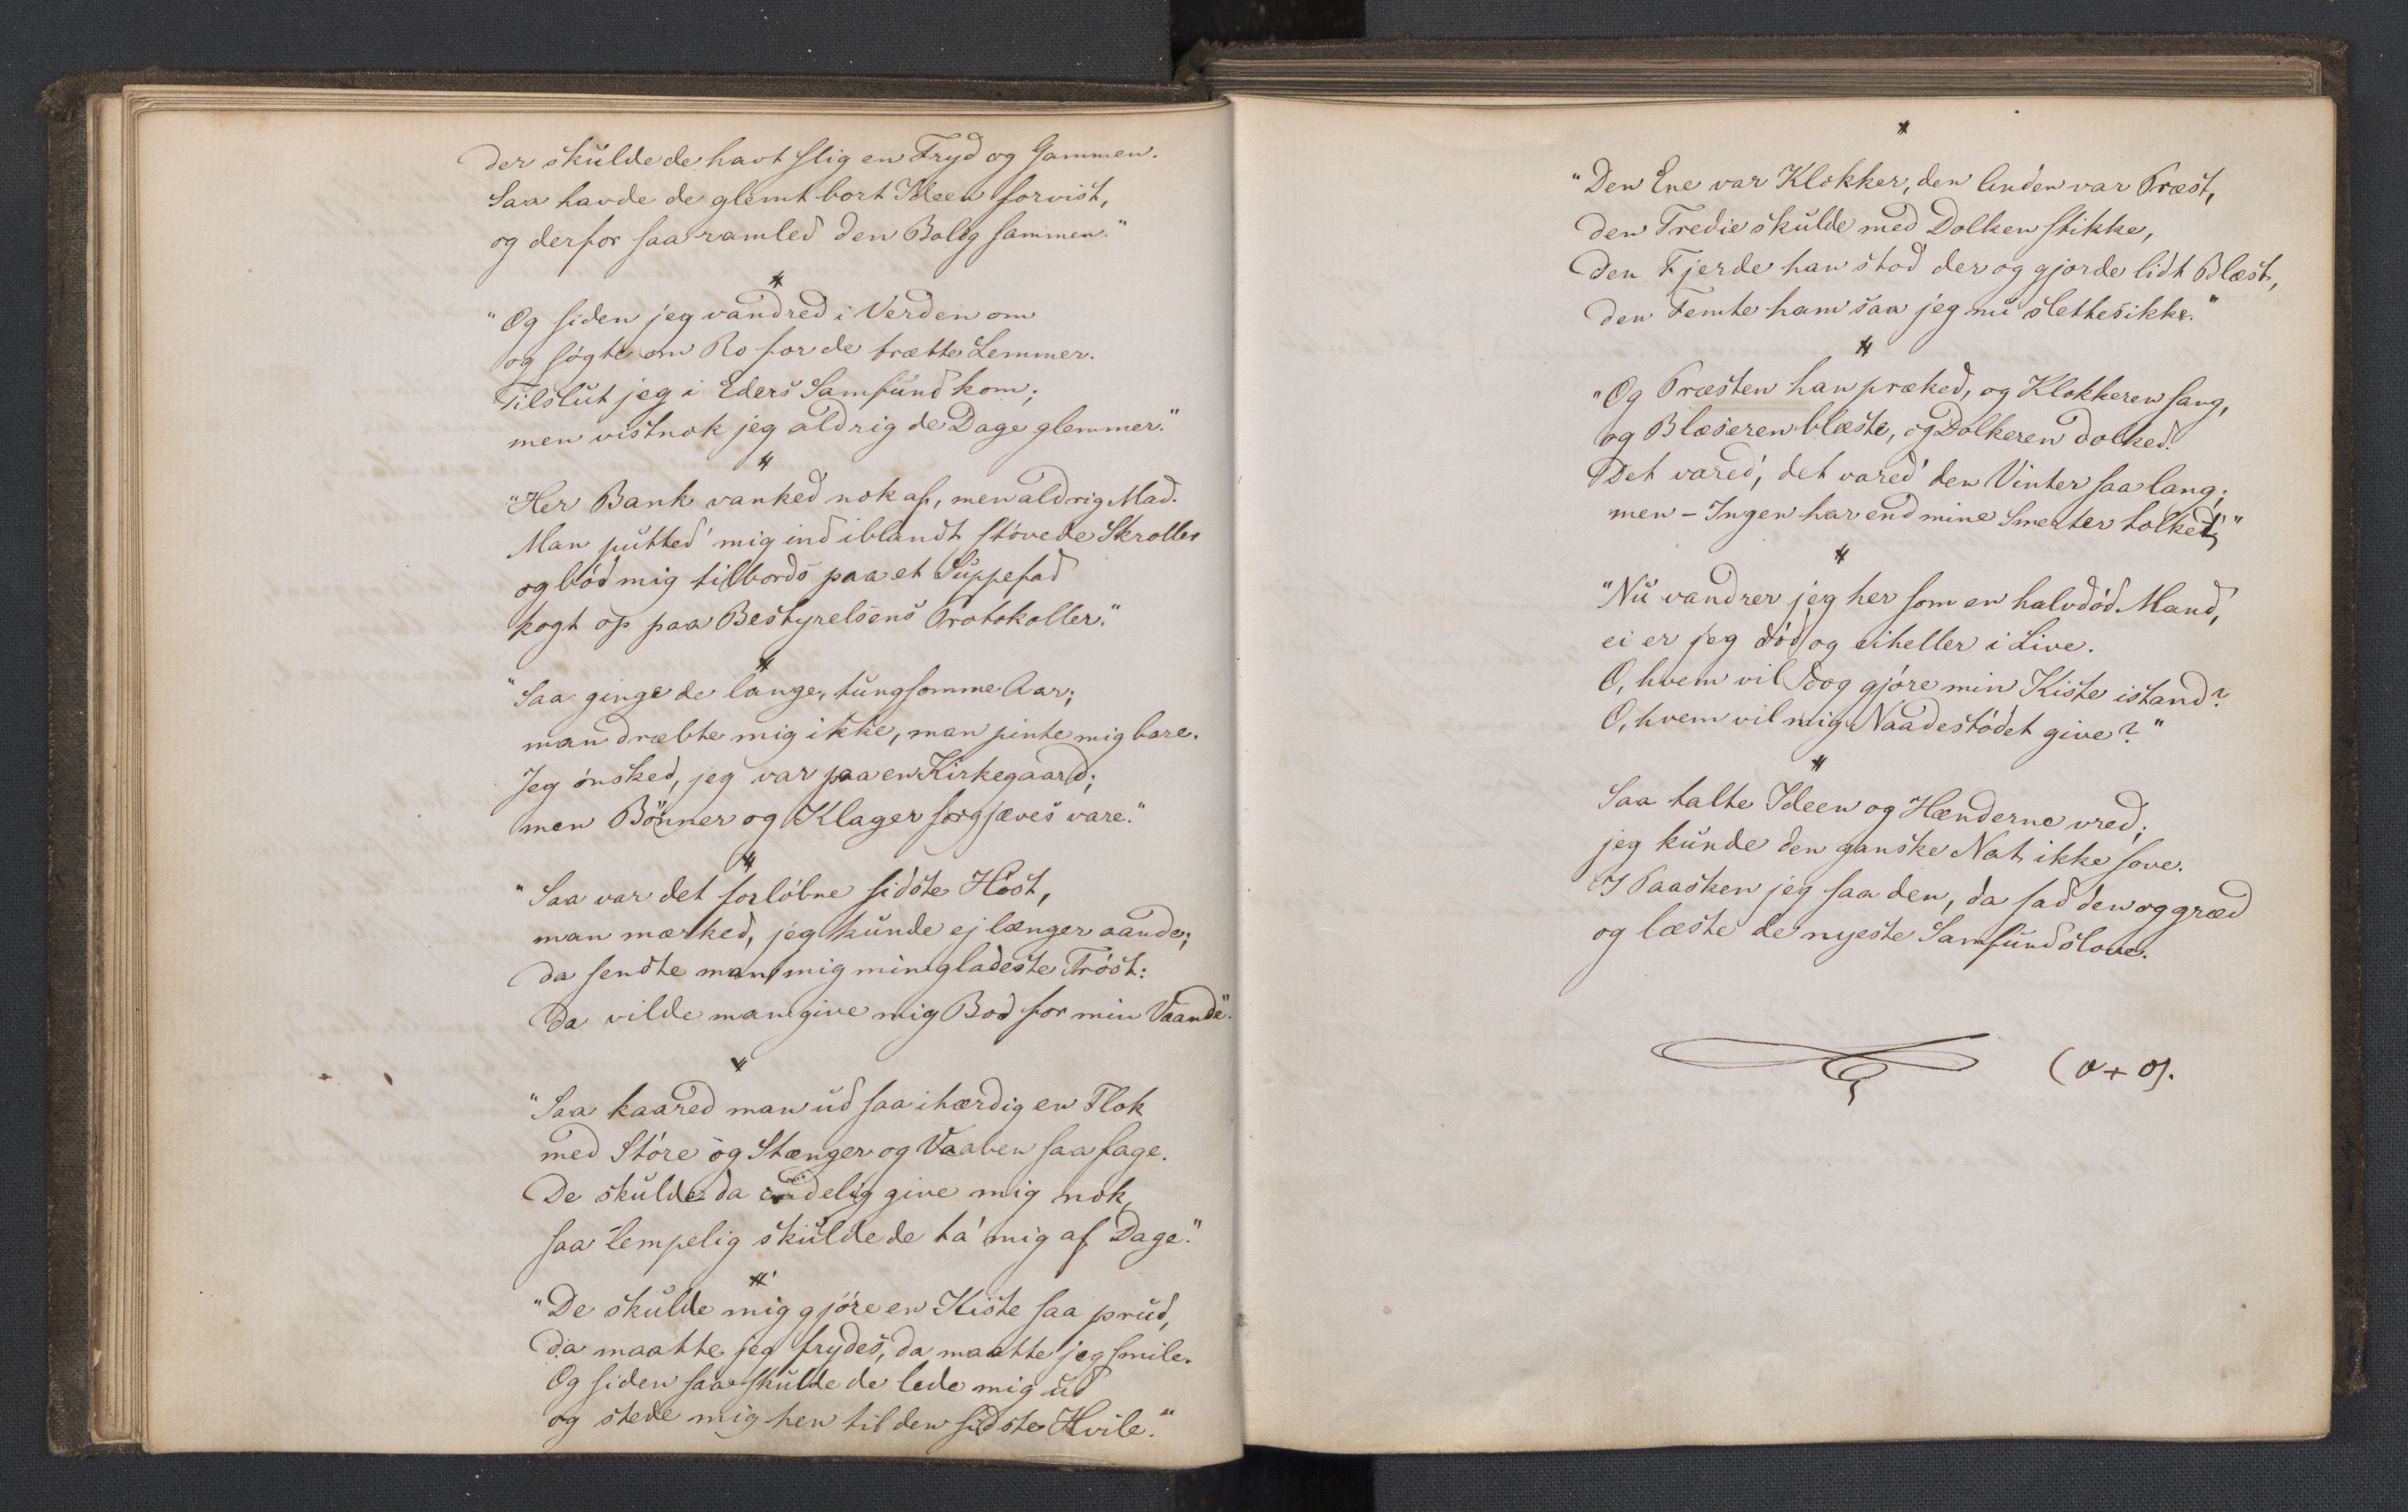 der skulde de havt slig en Fryd og Gammen.
Saa havde de glemt bort Ideen forvist,
og derfor saa ramled den Bolig sammen."
*
"Og siden jeg vandred i Verden om
og søgte om Ro for de trætte Lemmer.
Tilslut jeg i Eders Samfund kom;
men vistnok jeg aldrig de Dage glemmer."
*
"Her Bank vanked nok af, men aldrig Mad.
Man putted' mig ind iblandt støvede Skroller
og bød mig tilbords paa et Suppefad
kogt op paa Bestyrelsens Protokoller."
*
"Saa ginge de lange, tungsomme Aar;
man dræbte mig ikke, man pinte mig bare.
Jeg ønsked, jeg var paa en Kirkegaard;
men Bønner og Klager forgjæves vare."
*
"Saa var det forløbne sidste Høst,
man mærked, jeg kunde ej længer aande;
da sendte man mig min gladeste Trøst:
Da vilde man give mig Bod for min Vaande".
*
"Saa kaared man ud saa ihærdig en Flok
med Støre og Stænger og Vaaben saa fage.
De skulde da endelig give mig nok,
saa lempelig skulde de ta' mig af Dage."
*
"De skulde mig gjøre en Kiste saa prud,
da maatte jeg frydes, da maatte jeg smile.
Og siden saa skulde de lede mig ud
og stede mig hen til den sidste Hvile."
*
"Den Ene var Klokker, den Anden var Præst,
den Tredie skulde med Dolken stikke,
den Fjerde han stod der og gjorde lidt Blæst,
den Femte ham saa jeg nu slettes ikke."
*
"Og Præsten han præked, og Klokkeren sang,
og Blæseren blæste, og Dolkeren dolked.
Det vared', det vared' den Vinter saa lang;
men – Ingen har end mine Smerter tolked;"
*
"Nu vandrer jeg her som en halvdød Mand,
ei er jeg død og ei heller i Live.
O, hvem vil dog gjøre min Kiste istand?
O, hvem vil mig Naadestødet give?"
*
Saa talte Ideen og Hænderne vred;
jeg kunde den ganske Nat ikke sove.
I Paasken jeg saa den, da sad den og græd
og læste de nyeste Samfundslove.
(0 + 0).